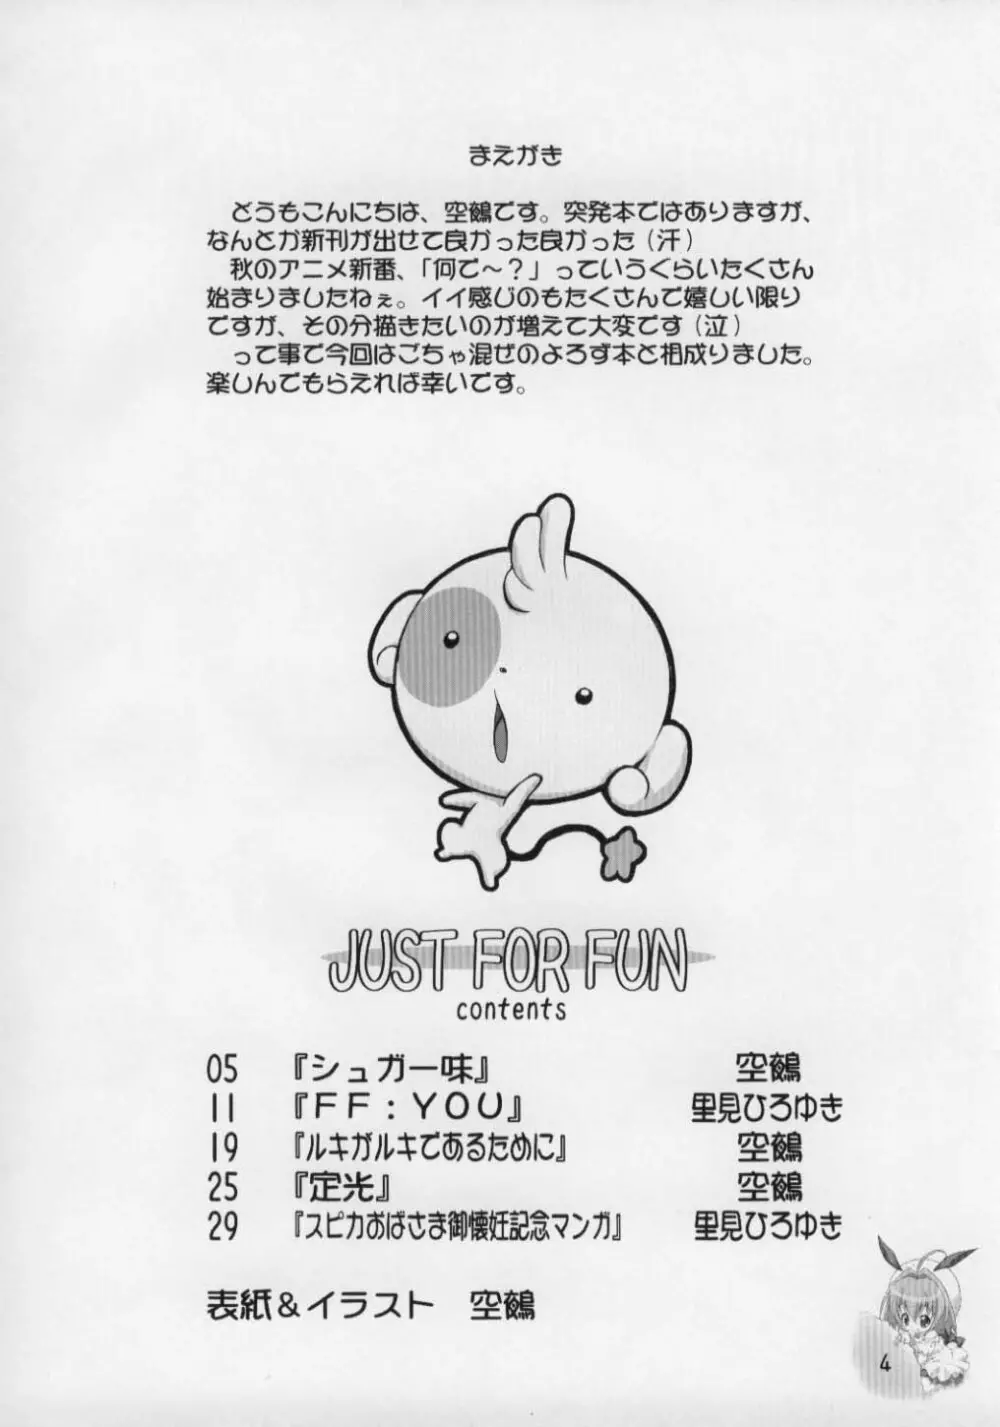 まえがき
どうもこんにちは、空鶴です。突発本ではありますが、
なんとか新刊が出せて良かった良かった（汗）
秋のアニメ新番、「何で〜？」っていうぐらいたくさん
始まりましたねぇ。イイ感じのもたくさんで嬉しい限り
ですが、その分描きたいのが増えて大変です（泣）
って事で今回はごちゃ混ぜのよろず本と相成りました。
楽しんでもらえれば幸いです。
JUST FOR FUN
contents
05 『シュガー味』 空鶴
11 『ＦＦ：ＹＯＵ』 里見ひろゆき
19 『ルキがルキであるために』 空鶴
25 『定光』 空鶴
29 『スピカおばさま御懐妊記念マンガ』 里見ひろゆき
表紙＆イラスト 空鶴
4